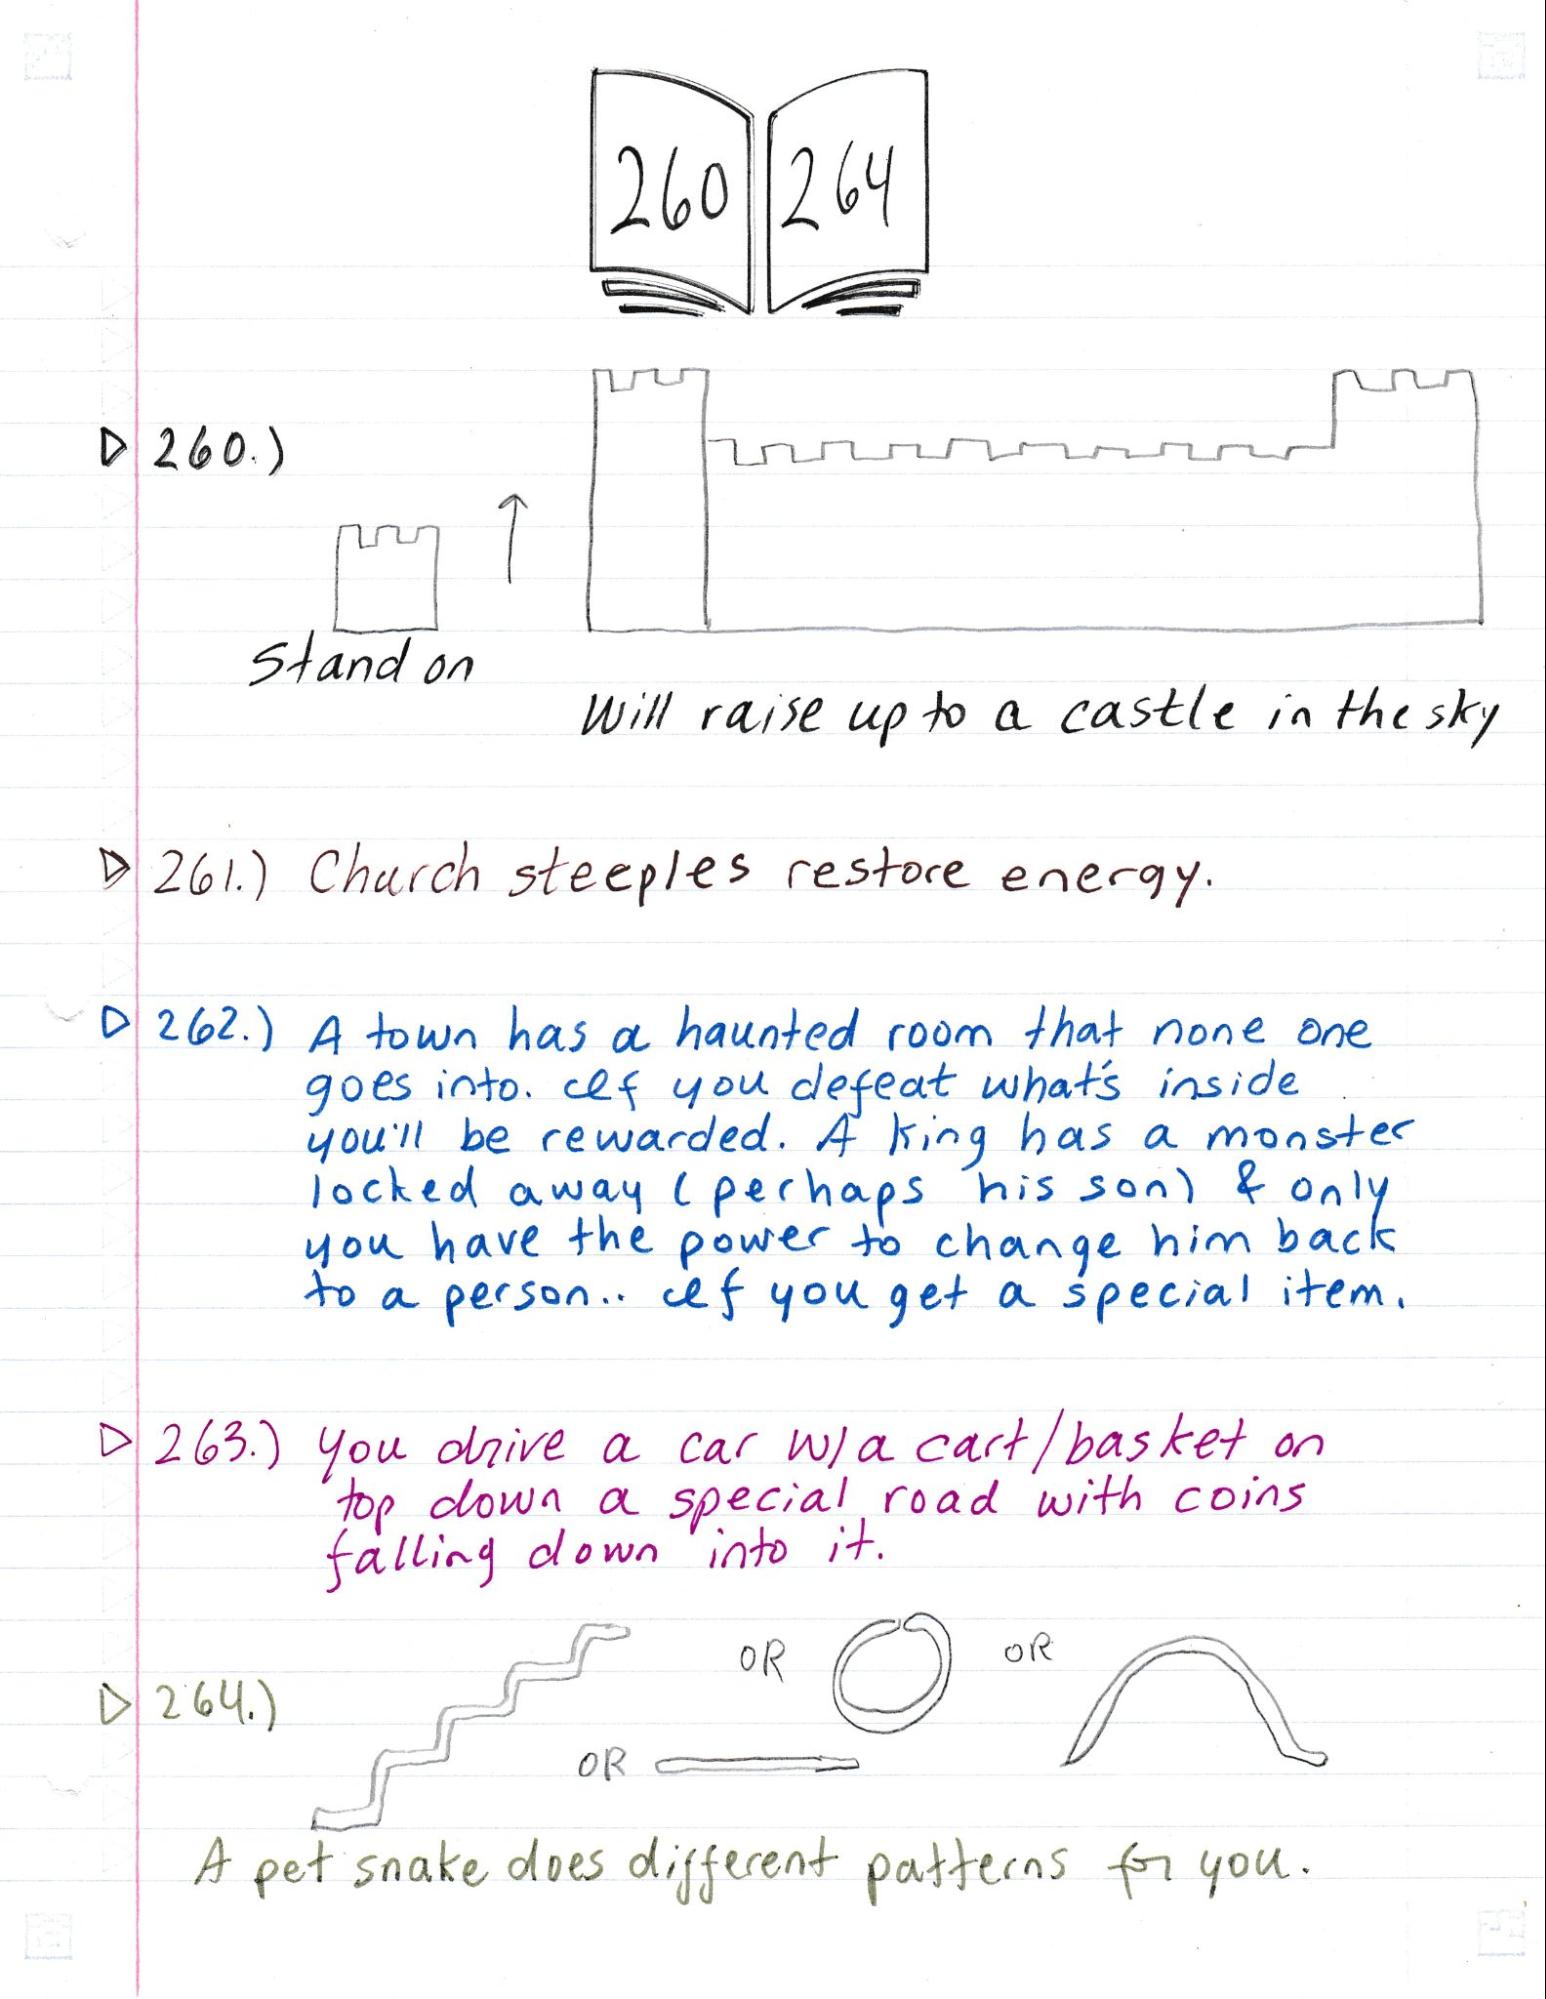 260 264
260.)
Stand on
Will raise up to a castle in the sky
261.) Church steeples restore energy.
262.) A town has a haunted room that none one
goes into. If you defeat what's inside
you'll be rewarded. A king has a monster
locked away (perhaps his son) & only
you have the power to change him back
to a person.. If you get a special item.
263.) You drive a car w/a cart/basket on
top down a special road with coins
falling down into it.
OR OR
264.)
OR
A pet snake does different patterns for you.